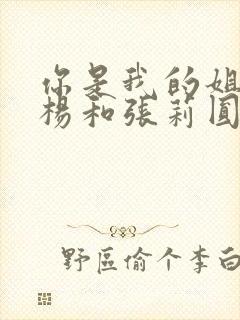 你是我的姐
杨和张莉圆
野区偷个李白